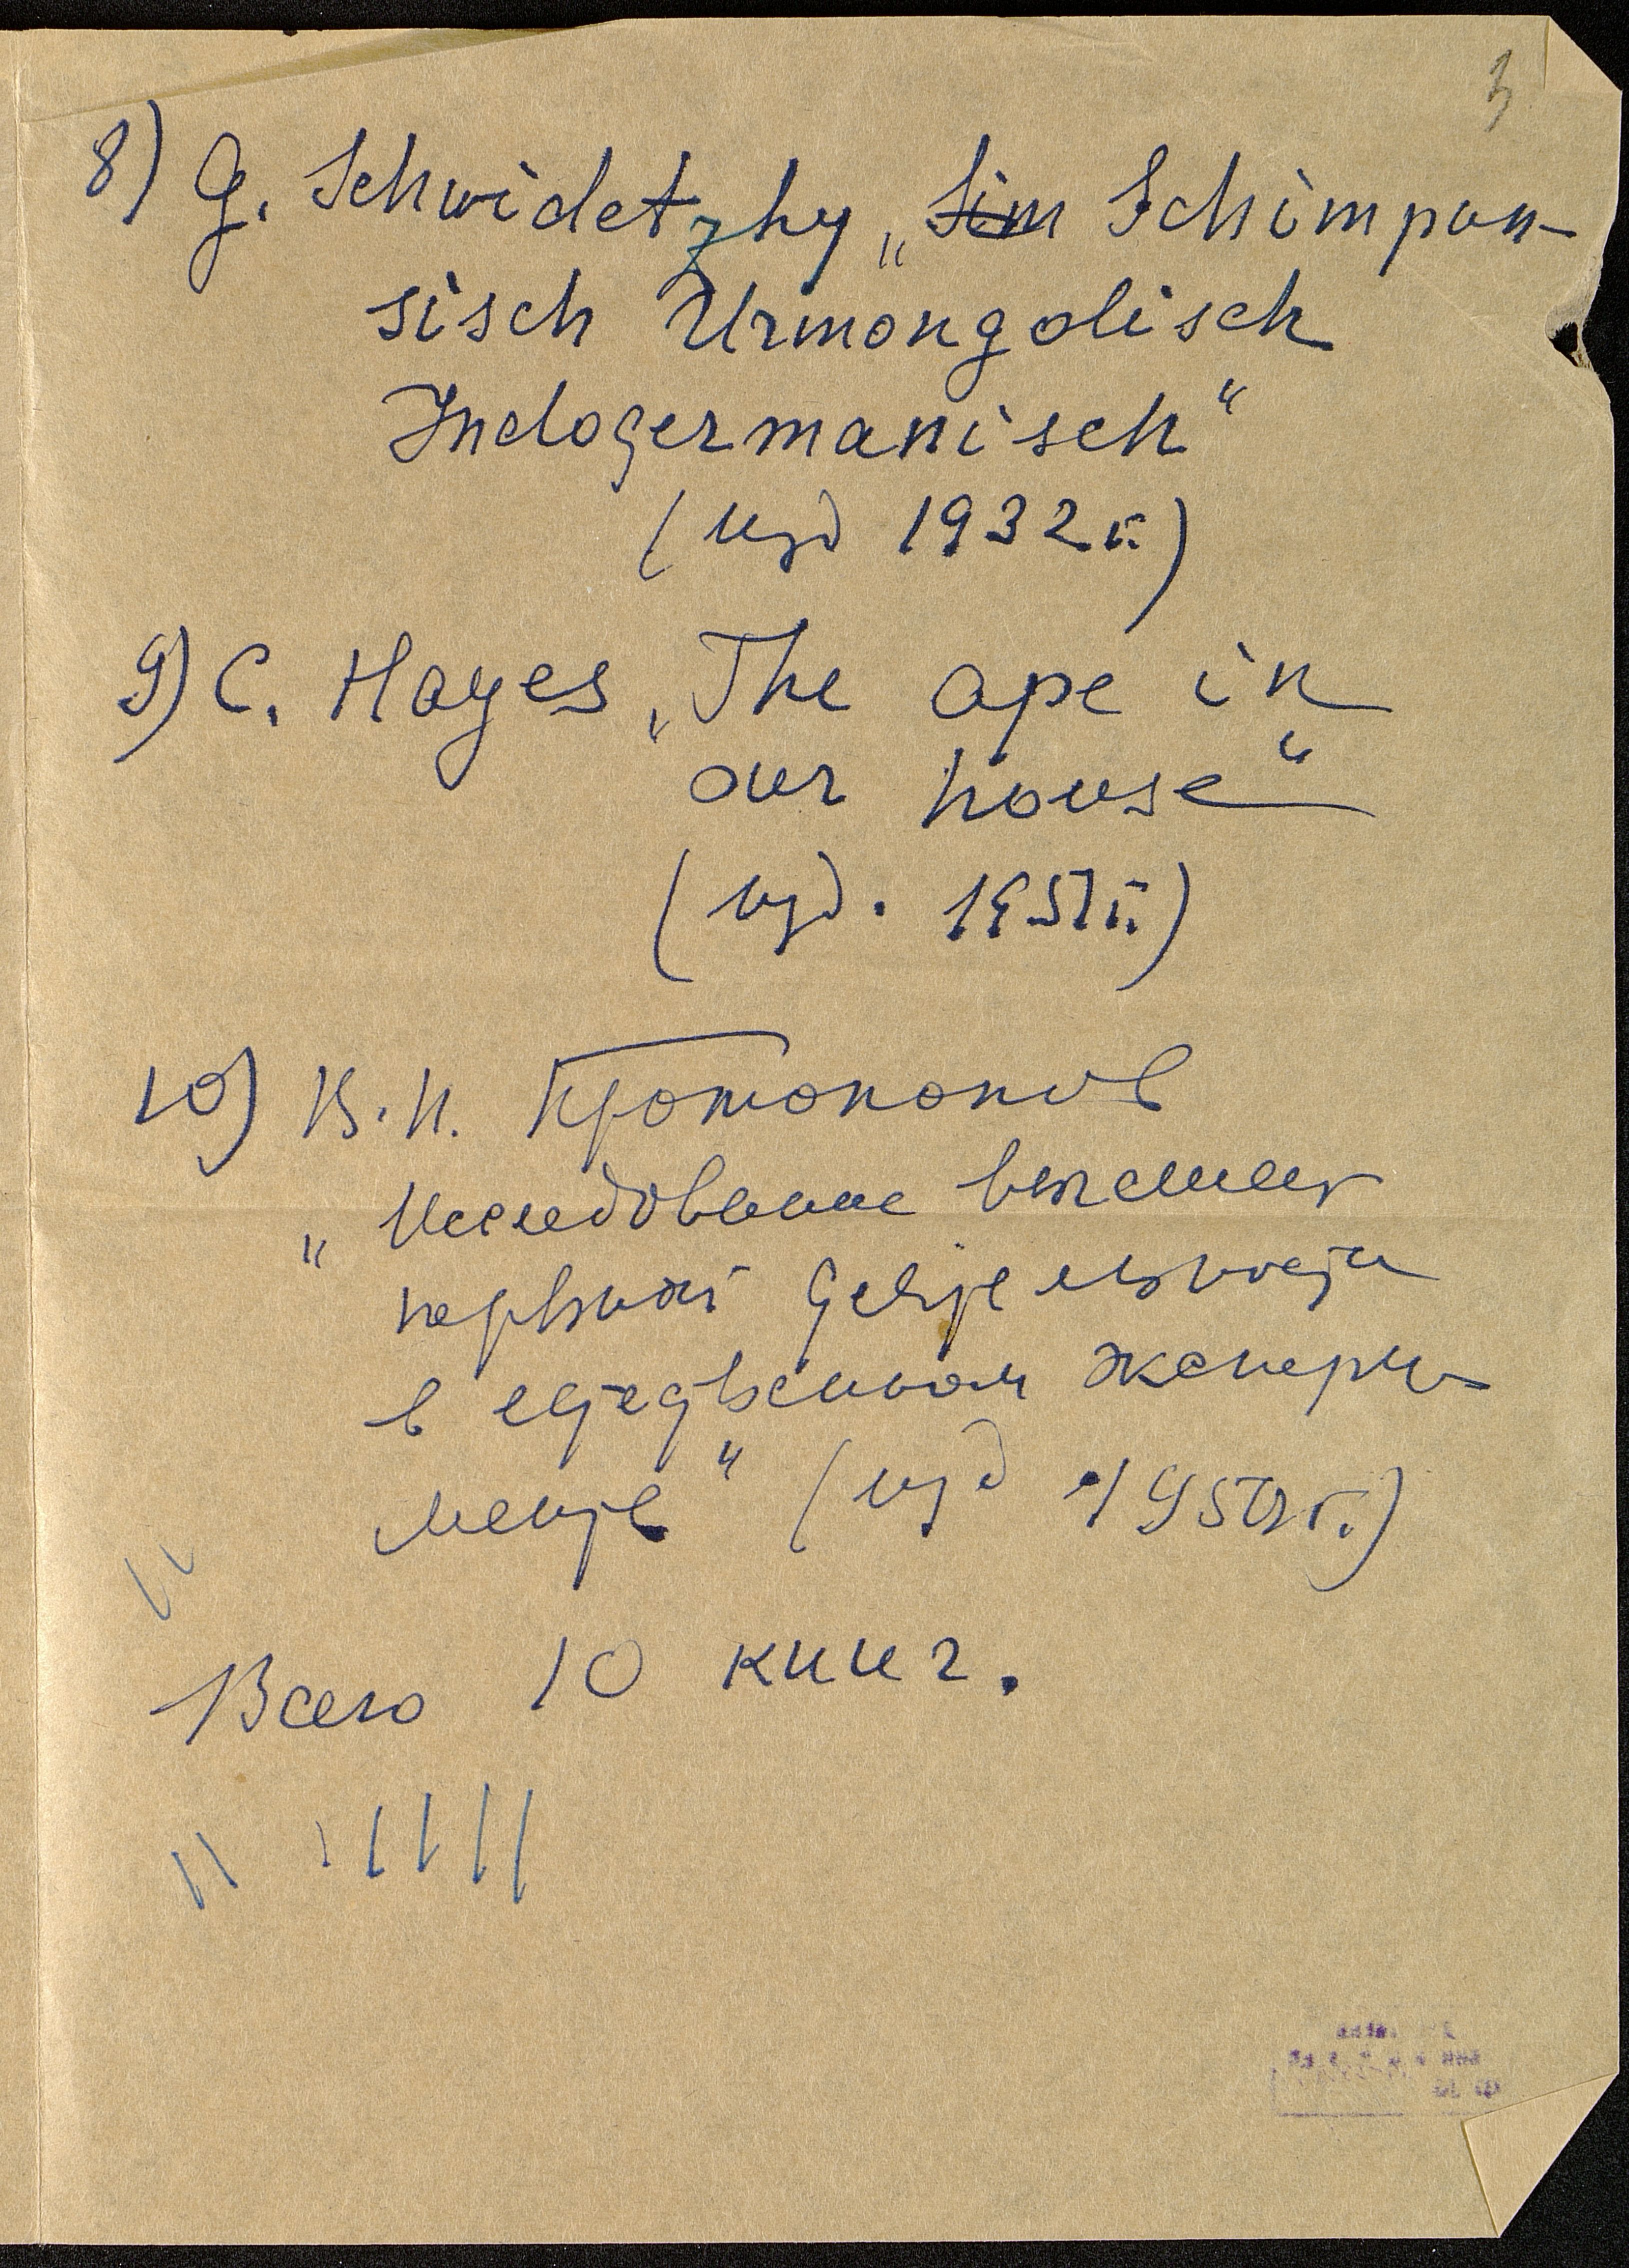 3
8) G. Schwidetzky „Sim Schimpan-
sisch Urmongolisch
Indogermanisch“
(изд 1932 г.)
9) C. Hayes „The ape in
our house“
(изд. 1951 г.)
10) В. П. Протопопов
„Исследование высшей
нервной деятельности
в естественном экспери-
менте“ (изд 1950 г.)
Всего 10 книг.